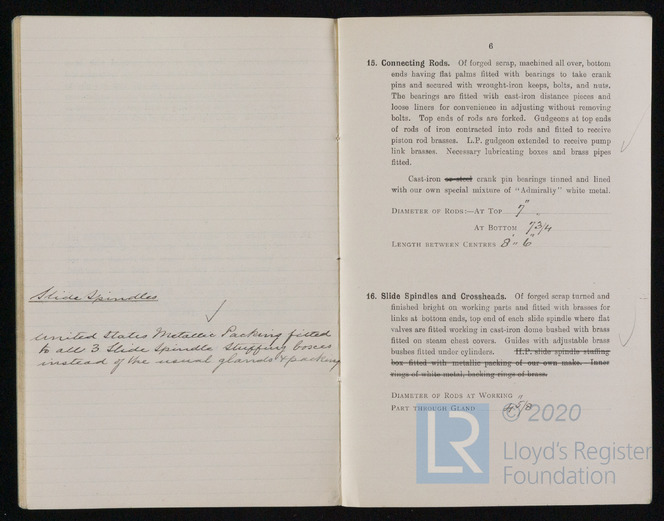 Slide Spindles
United States Metallic Packing fitted
to all 3 Slide Spindle Stuffing boxes
instead of the usual glands & packing
6
15. Connecting Rods. Of forged scrap, machined all over, bottom
ends having flat palms fitted with bearings to take crank
pins and secured with wrought-iron keeps, bolts, and nuts.
The bearings are fitted with cast-iron distance pieces and
loose liners for convenience in adjusting without removing
bolts. Top ends of rods are forked. Gudgeons at top ends
of rods of iron contracted into rods and fitted to receive
piston rod brasses. L.P. gudgeon extended to receive pump
link brasses. Necessary lubricating boxes and brass pipes
fitted.
Cast-iron or steel crank pin bearings tinned and lined
with our own special mixture of "Admiralty" white metal.
Diameter of Rods:—At Top 7"
At Bottom 7 3/4"
Length between Centres 8' " 6"
16. Slide Spindles and Crossheads. Of forged scrap turned and
finished bright on working parts and fitted with brasses for
links at bottom ends, top end of each slide spindle where flat
valves are fitted working in cast-iron dome bushed with brass
fitted on steam chest covers. Guides with adjustable brass
bushes fitted under cylinders. H.P. slide spindle stuffing
box fitted with metallic packing of our own make. Inner
rings of white metal, backing rings of brass.
Diameter of Rods at Working
Part through Gland 4 5/8"
© 2020
LR
Lloyd's Register
Foundation